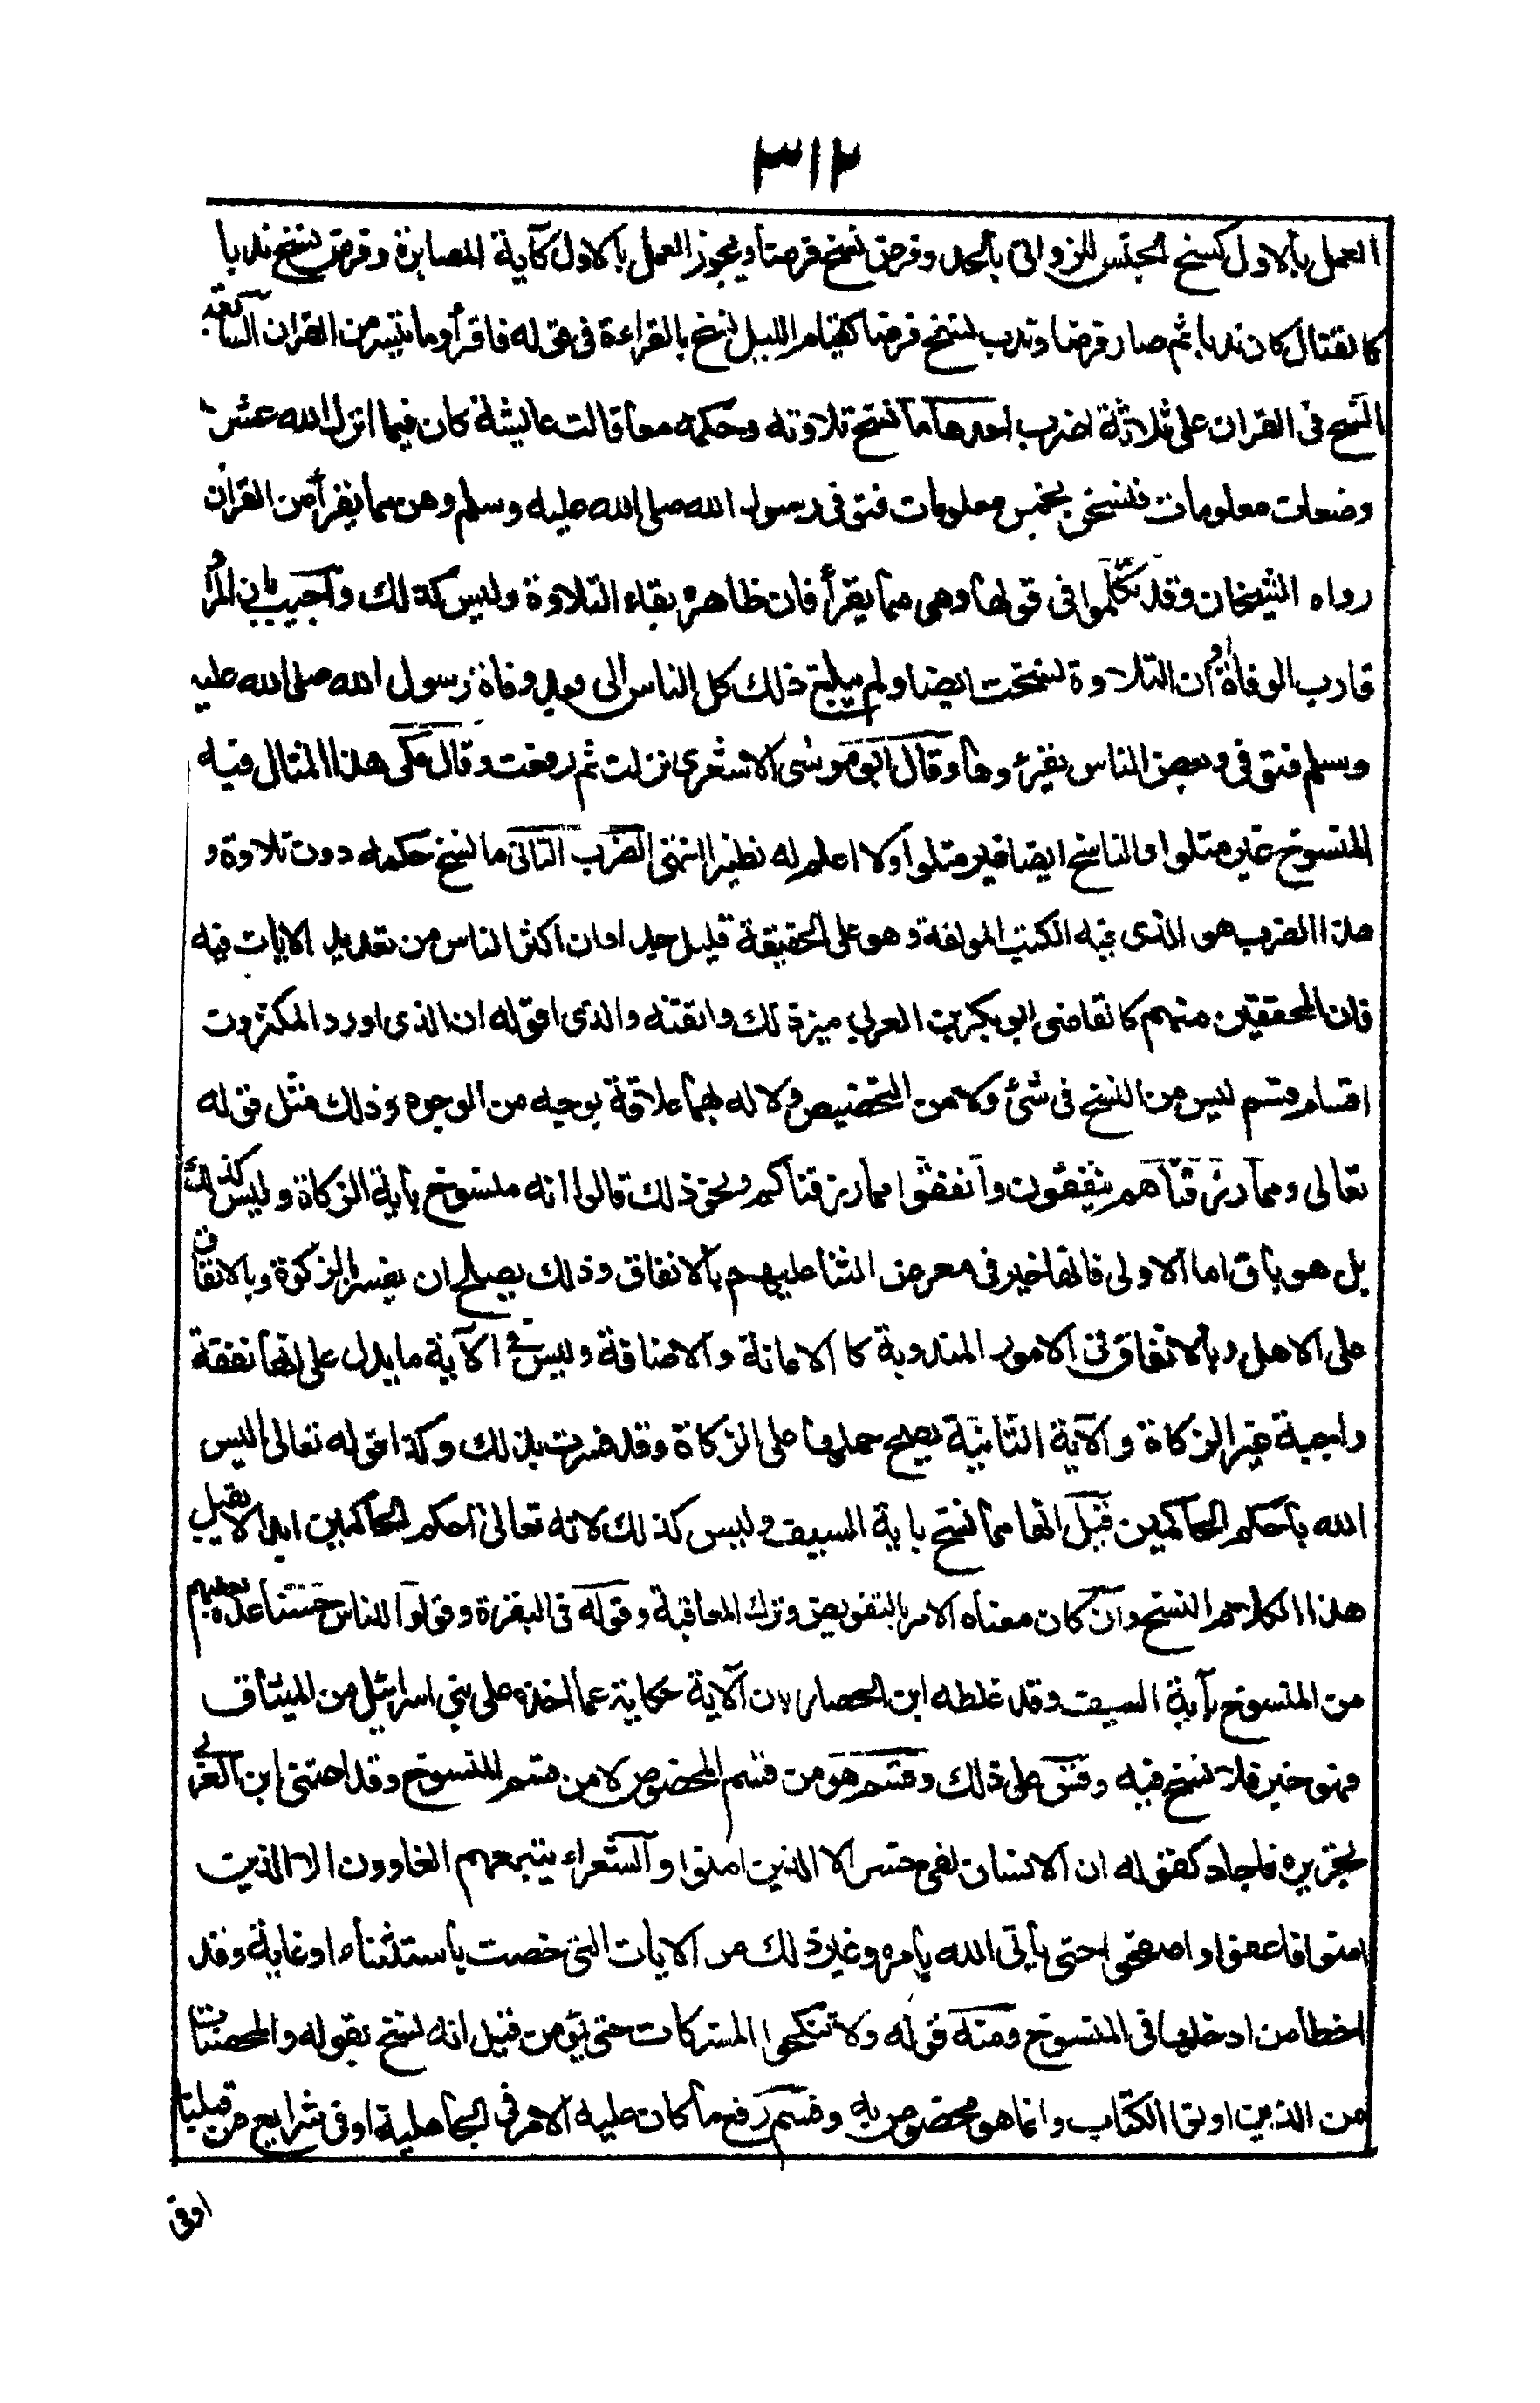 ٣١٢
العمل بالاول كنسخ الحبس للزواني بالحد وفرض نسخ فرضا ويجوز العمل بالاول كآية المصابرة وفرض نسخ ندبا
كالقتال كان ندبا ثم صار فرضا وندب نسخ فرضا كقيام الليل نسخ بالقراءة في قوله فاقرأوا ما تيسر من القران السابعة
النسخ في القران على ثلاثة اضرب احدها ما نسخ تلاوته وحكمه معا قالت عايشة كان فيما انزل الله عشر
رضعات معلومات فنسخن بخمس معلومات فتوفى رسول الله صلى الله عليه وسلم وهن مما يقرأ من القران
رواه الشيخان وقد تكلموا في قولها وهي مما يقرأ فان ظاهره بقاء التلاوة وليس كذلك واجيب بان المراد
قارب الوفاة او ان التلاوة نسخت ايضا ولم يبلغ ذلك كل الناس الى بعد وفاة رسول الله صلى الله عليه
وسلم فتوفى وبعض الناس يقرءوها وقال ابو موسى الاشعري نزلت ثم رفعت وقال مكي هذا المثال فيه
المنسوخ غير متلوا والناسخ ايضا غير متلوا ولا اعلم له نظيرا انتهى الضرب الثاني ما نسخ حكمه دون تلاوة و
هذا الضرب هو الذي فيه الكتب المولفة وهو على الحقيقة قليل جدا وان اكثر الناس من تعديد الايات فيه
فان المحققين منهم كالقاضي ابو بكر بن العربي ميز ذلك واتقنه والذي اقوله ان الذي اورد المكثرون
اقسام قسم ليس من النسخ في شئ ولا من التخصيص ولا له بهما علاقة بوجه من الوجوه وذلك مثل قوله
تعالى ومما رزقناهم ينفقون وانفقوا مما رزقناكم ونحو ذلك قالوا انه منسوخ بآية الزكاة وليس كذلك
بل هو باق اما الاولى فانها خبر في معرض الثنا عليهم بالانفاق وذلك يصلح ان يفسر بالزكوة وبالانفاق
على الاهل وبالانفاق في الامور المندوبة كالاعانة والاضافة وليس في الآية ما يدل على انها نفقة
واجبة غير الزكاة والآية الثانية يصلح حملها على الزكاة وقد فسرت بذلك وكذا قوله تعالى اليس
الله باحكم الحاكمين قيل انها مما نسخ باية السيف وليس كذلك لانه تعالى احكم الحاكمين ابدا لا يقبل
هذا الكلام النسخ وان كان معناه الامر بالتفويض وترك المعاقبة وقوله في البقرة وقولوا للناس حسنا عده بعضهم
من المنسوخ بآية السيف وقد غلطه ابن الحصار لان الآية حكاية عما اخذه على بني اسرائيل من الميثاق
فهو خبر فلا نسخ فيه وقس على ذلك وقسم هو من قسم المخصوص لا من قسم المنسوخ وقد اعتنى ابن العربي
بتحريره فاجاد كقوله ان الانسان لفي خسر الا الذين امنوا والشعراء يتبعهم الغاوون الا الذين
امنوا فاعفوا واصفحوا حتى يأتي الله بامره وغير ذلك من الايات التي خصت باستثناء او غاية وقد
اخطأ من ادخلها في المنسوخ ومنه قوله ولا تنكحوا المشركات حتى يؤمن قيل انه نسخ بقوله والمحصنات
من الذين اوتوا الكتاب وانما هو مخصوص به وقسم رفع ما كان عليه الامر في الجاهلية او في شرايع من قبلنا
اوفى